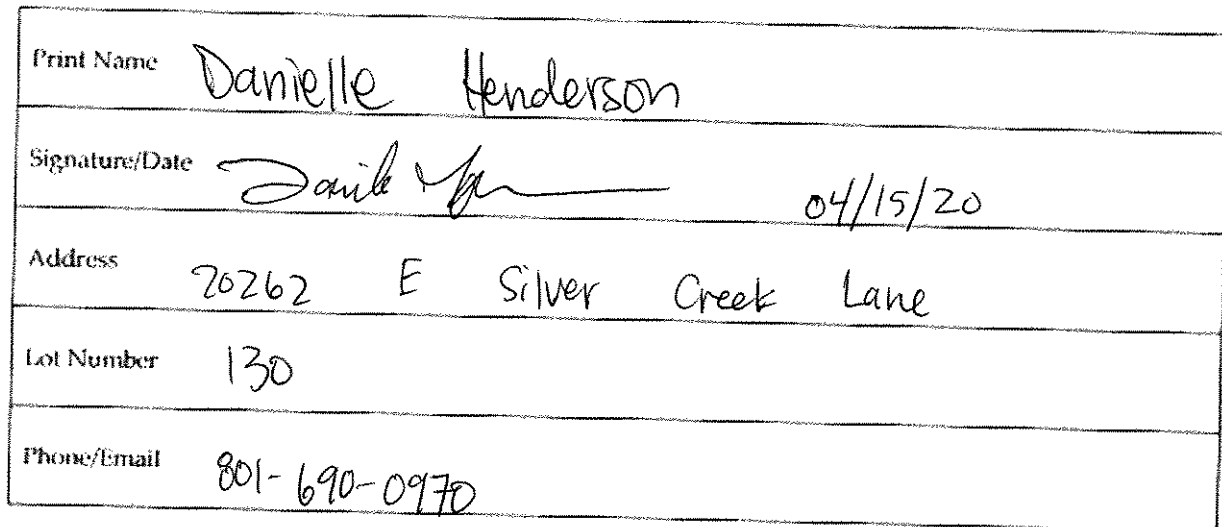 Print Name Danielle Henderson
Signature/Date 04/15/20
Address 20262 E Silver Creek Lane
Lot Number 130
Phone/Email 801-690-0970